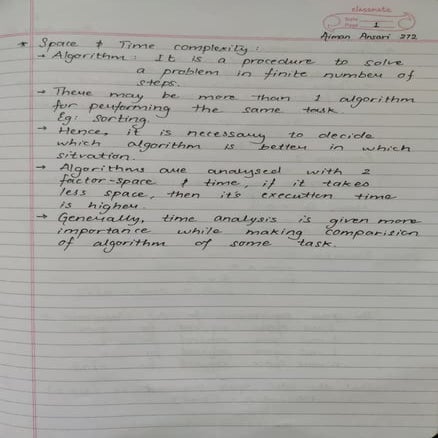 classmate
Date
Page 1
Aiman Ansari 272
* Space & Time complexity :
→ Algorithm : It is a procedure to solve
a problem in finite number of
steps.
→ There may be more than 1 algorithm
for performing the same task.
Eg: Sorting.
→ Hence, it is necessary to decide
which algorithm is better in which
sitvation.
→ Algorithms are analysed with 2
factor-space & time, if it takes
less space, then it's execution time
is higher.
→ Generally, time analysis is given more
importance while making comparision
of algorithm of some task.